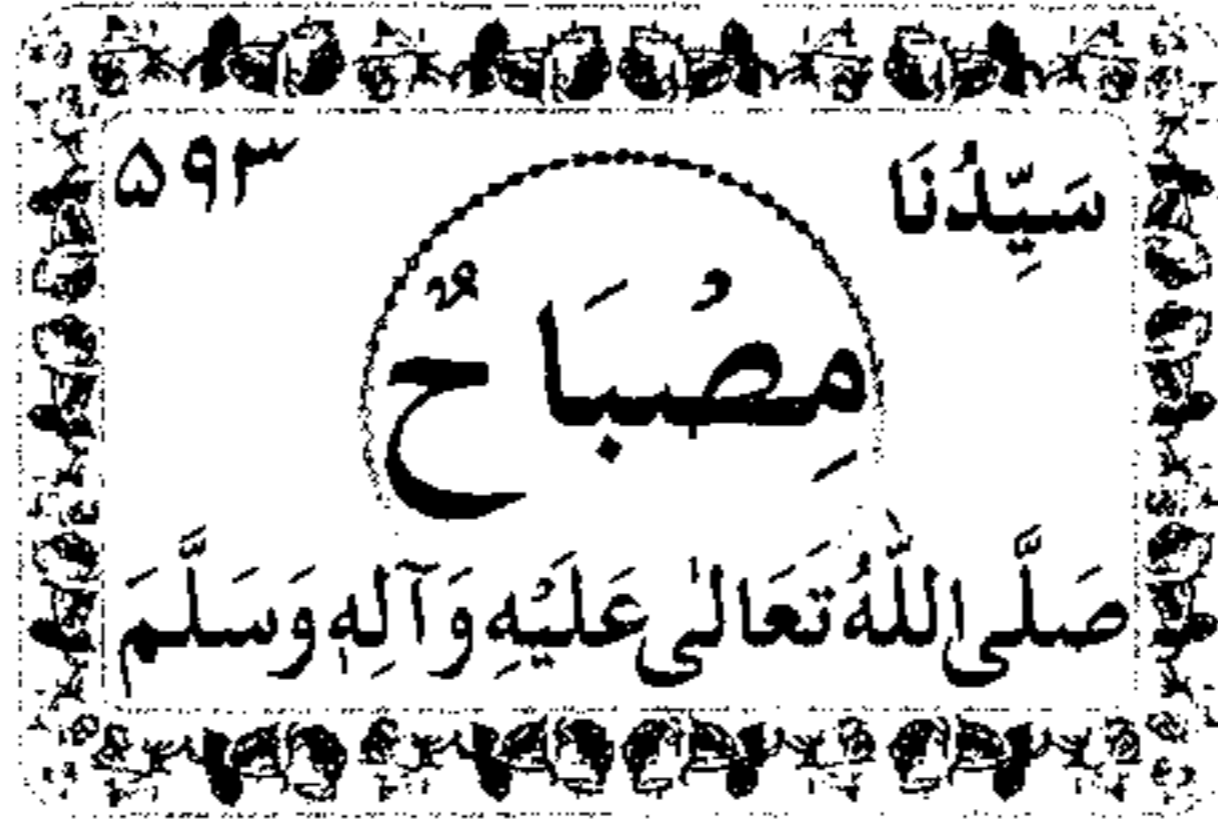 سَيِّدُنَا ۵۹۳
مِصْبَاحٌ
صَلَّى اللّٰهُ تَعَالٰى عَلَيْهِ وَآلِهٖ وَسَلَّمَ